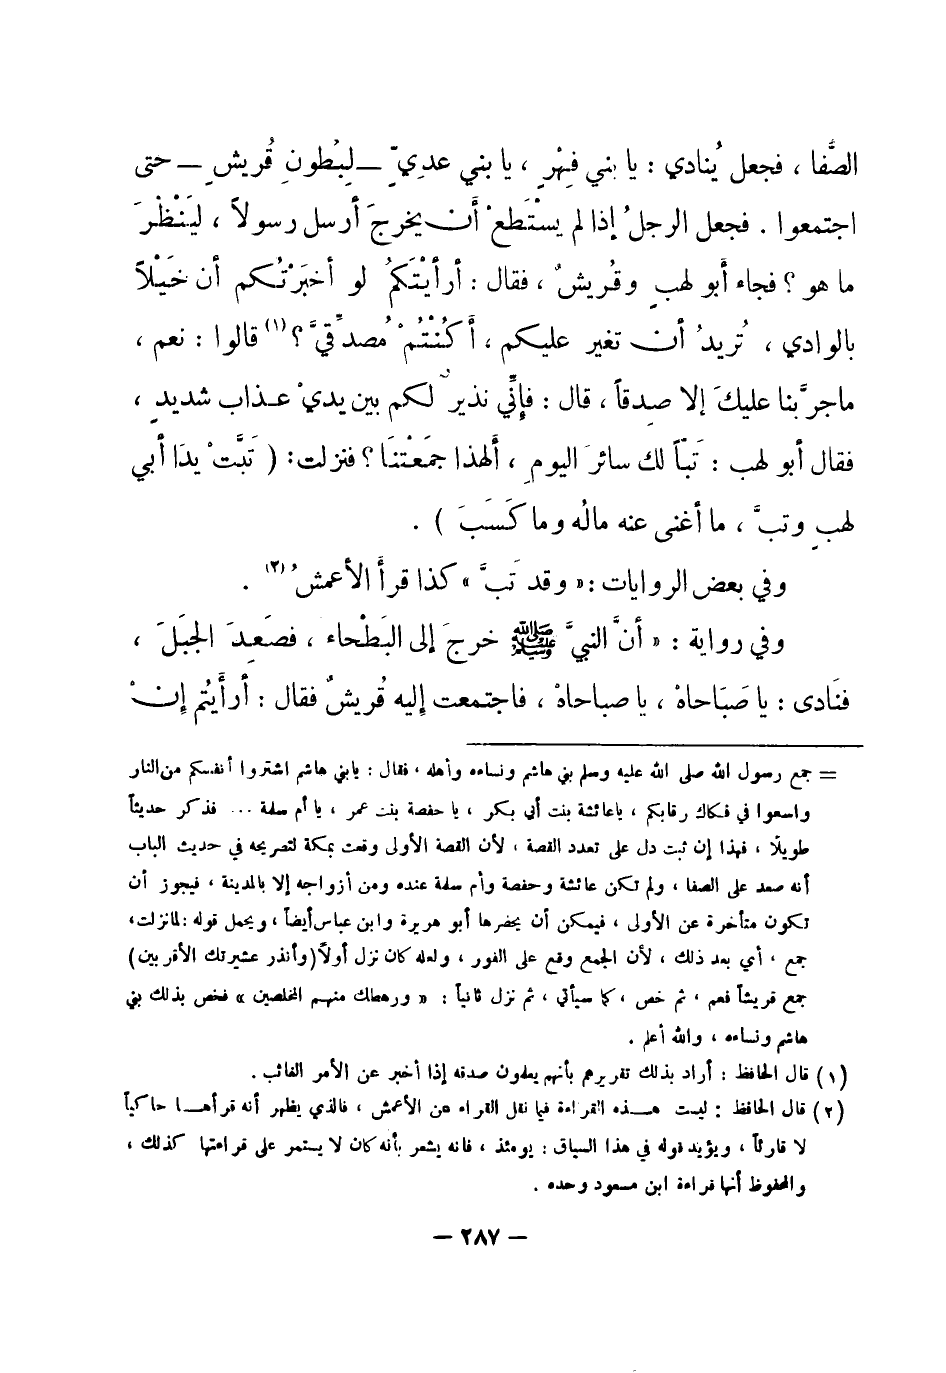 الصَّفا ، فجعل يُنادي : يا بني فِهْرٍ ، يا بني عدِيٍّ – لِبُطونِ قُريشٍ – حتى
اجتمعوا . فجعل الرجلُ إذا لم يسْتَطعْ أن يخرجَ أرسل رسولاً ، ليَنْظُرَ
ما هو ؟ فجاء أبو لهبٍ وقُريشٌ ، فقال : أرأيْتَكُمْ لو أخبَرْتُكم أن خَيْلاً
بالوادي ، تُريدُ أن تغير عليكم ، أكُنْتُمْ مُصدِّقيَّ ؟(١) قالوا : نعم ،
ماجرَّبنا عليكَ إلا صِدقاً ، قال : فإنِّي نذيرٌ لكم بين يديْ عذاب شديدٍ ،
فقال أبو لهب : تَبّاً لك سائرَ اليومِ ، ألهذا جمَعْتَنَا ؟ فنزلت: ( تَبَّتْ يدَا أبي
لهبٍ وتبَّ ، ما أغنى عنه مالُه وما كَسَبَ ) .
وفي بعض الروايات : « وقد تَبَّ » كذا قرأ الأعمشُ(٢) .
وفي رواية : « أنَّ النبيَّ ﷺ خرجَ إلى البَطْحاء ، فصَعِدَ الجبَلَ ،
فنَادى : يا صَبَاحاهْ ، يا صباحاهْ ، فاجتمعت إليه قُريشٌ فقال : أرأيتُم إنْ
= جمع رسول الله صلى الله عليه وسلم بني هاشم ونساءه وأهله ، فقال : يابني هاشم اشتروا أنفسكم من النار
واسعوا في فكاك رقابكم ، ياعائشة بنت أبي بكر ، يا حفصة بنت عمر ، يا أم سلمة ... فذكر حديثاً
طويلاً ، فهذا إن ثبت دل على تعدد القصة ، لأن القصة الأولى وقعت بمكة لتصريحه في حديث الباب
أنه صعد على الصفا ، ولم تكن عائشة وحفصة وأم سلمة عنده ومن أزواجه إلا بالمدينة ، فيجوز أن
تكون متأخرة عن الأولى ، فيمكن أن يحضرها أبو هريرة وابن عباس أيضاً ، ويحمل قوله : لما نزلت،
جمع ، أي بعد ذلك ، لأن الجمع وقع على الفور ، ولعله كان نزل أولاً (وأنذر عشيرتك الأقربين)
جمع قريشاً فعم ، ثم خص ، كما سيأتي ، ثم نزل ثانياً : « ورهطك منهم المخلصين » فخص بذلك بني
هاشم ونساءه ، والله أعلم .
(١) قال الحافظ : أراد بذلك تقريرهم بأنهم يعلمون صدقه إذا أخبر عن الأمر الغائب .
(٢) قال الحافظ : ليست هذه القراءة فيما نقل القراء عن الأعمش ، فالذي يظهر أنه قرأها حاكياً
لا قارئاً ، ويؤيد قوله في هذا السياق : يومئذ ، فانه يشعر بأنه كان لا يستمر على قراءتها كذلك ،
والمحفوظ أنها قراءة ابن مسعود وحده .
– ٢٨٧ –